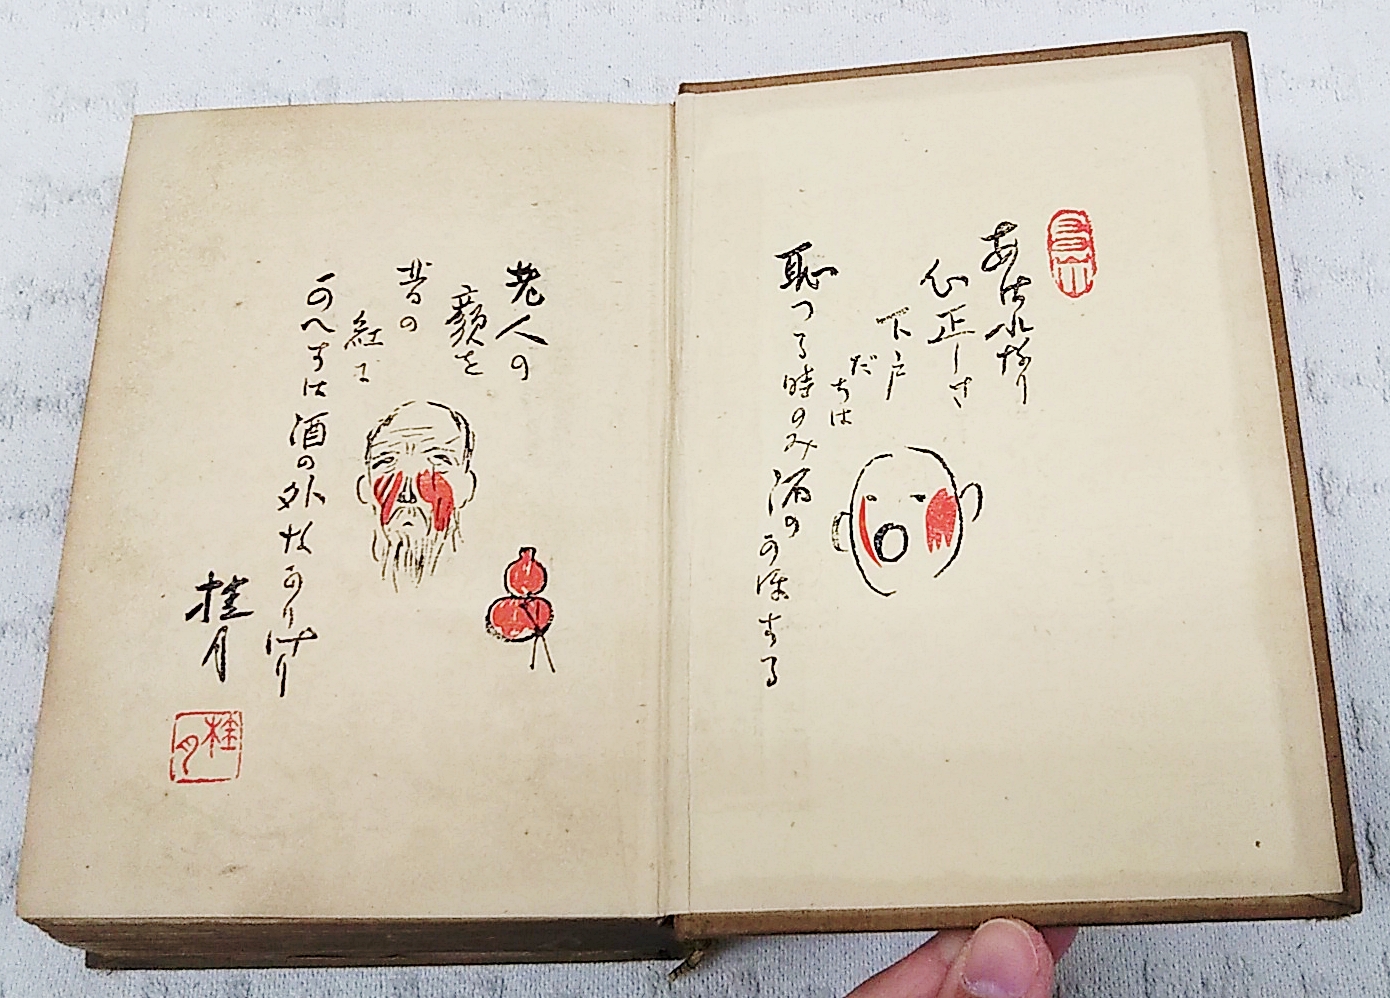 あはれなり
心正しき
下戸
だ
ちは
恥つる時のみ酒の
かほする
老人の
顔を
昔の
紅に
かへすは酒の外なかりけり
桂月
桂月